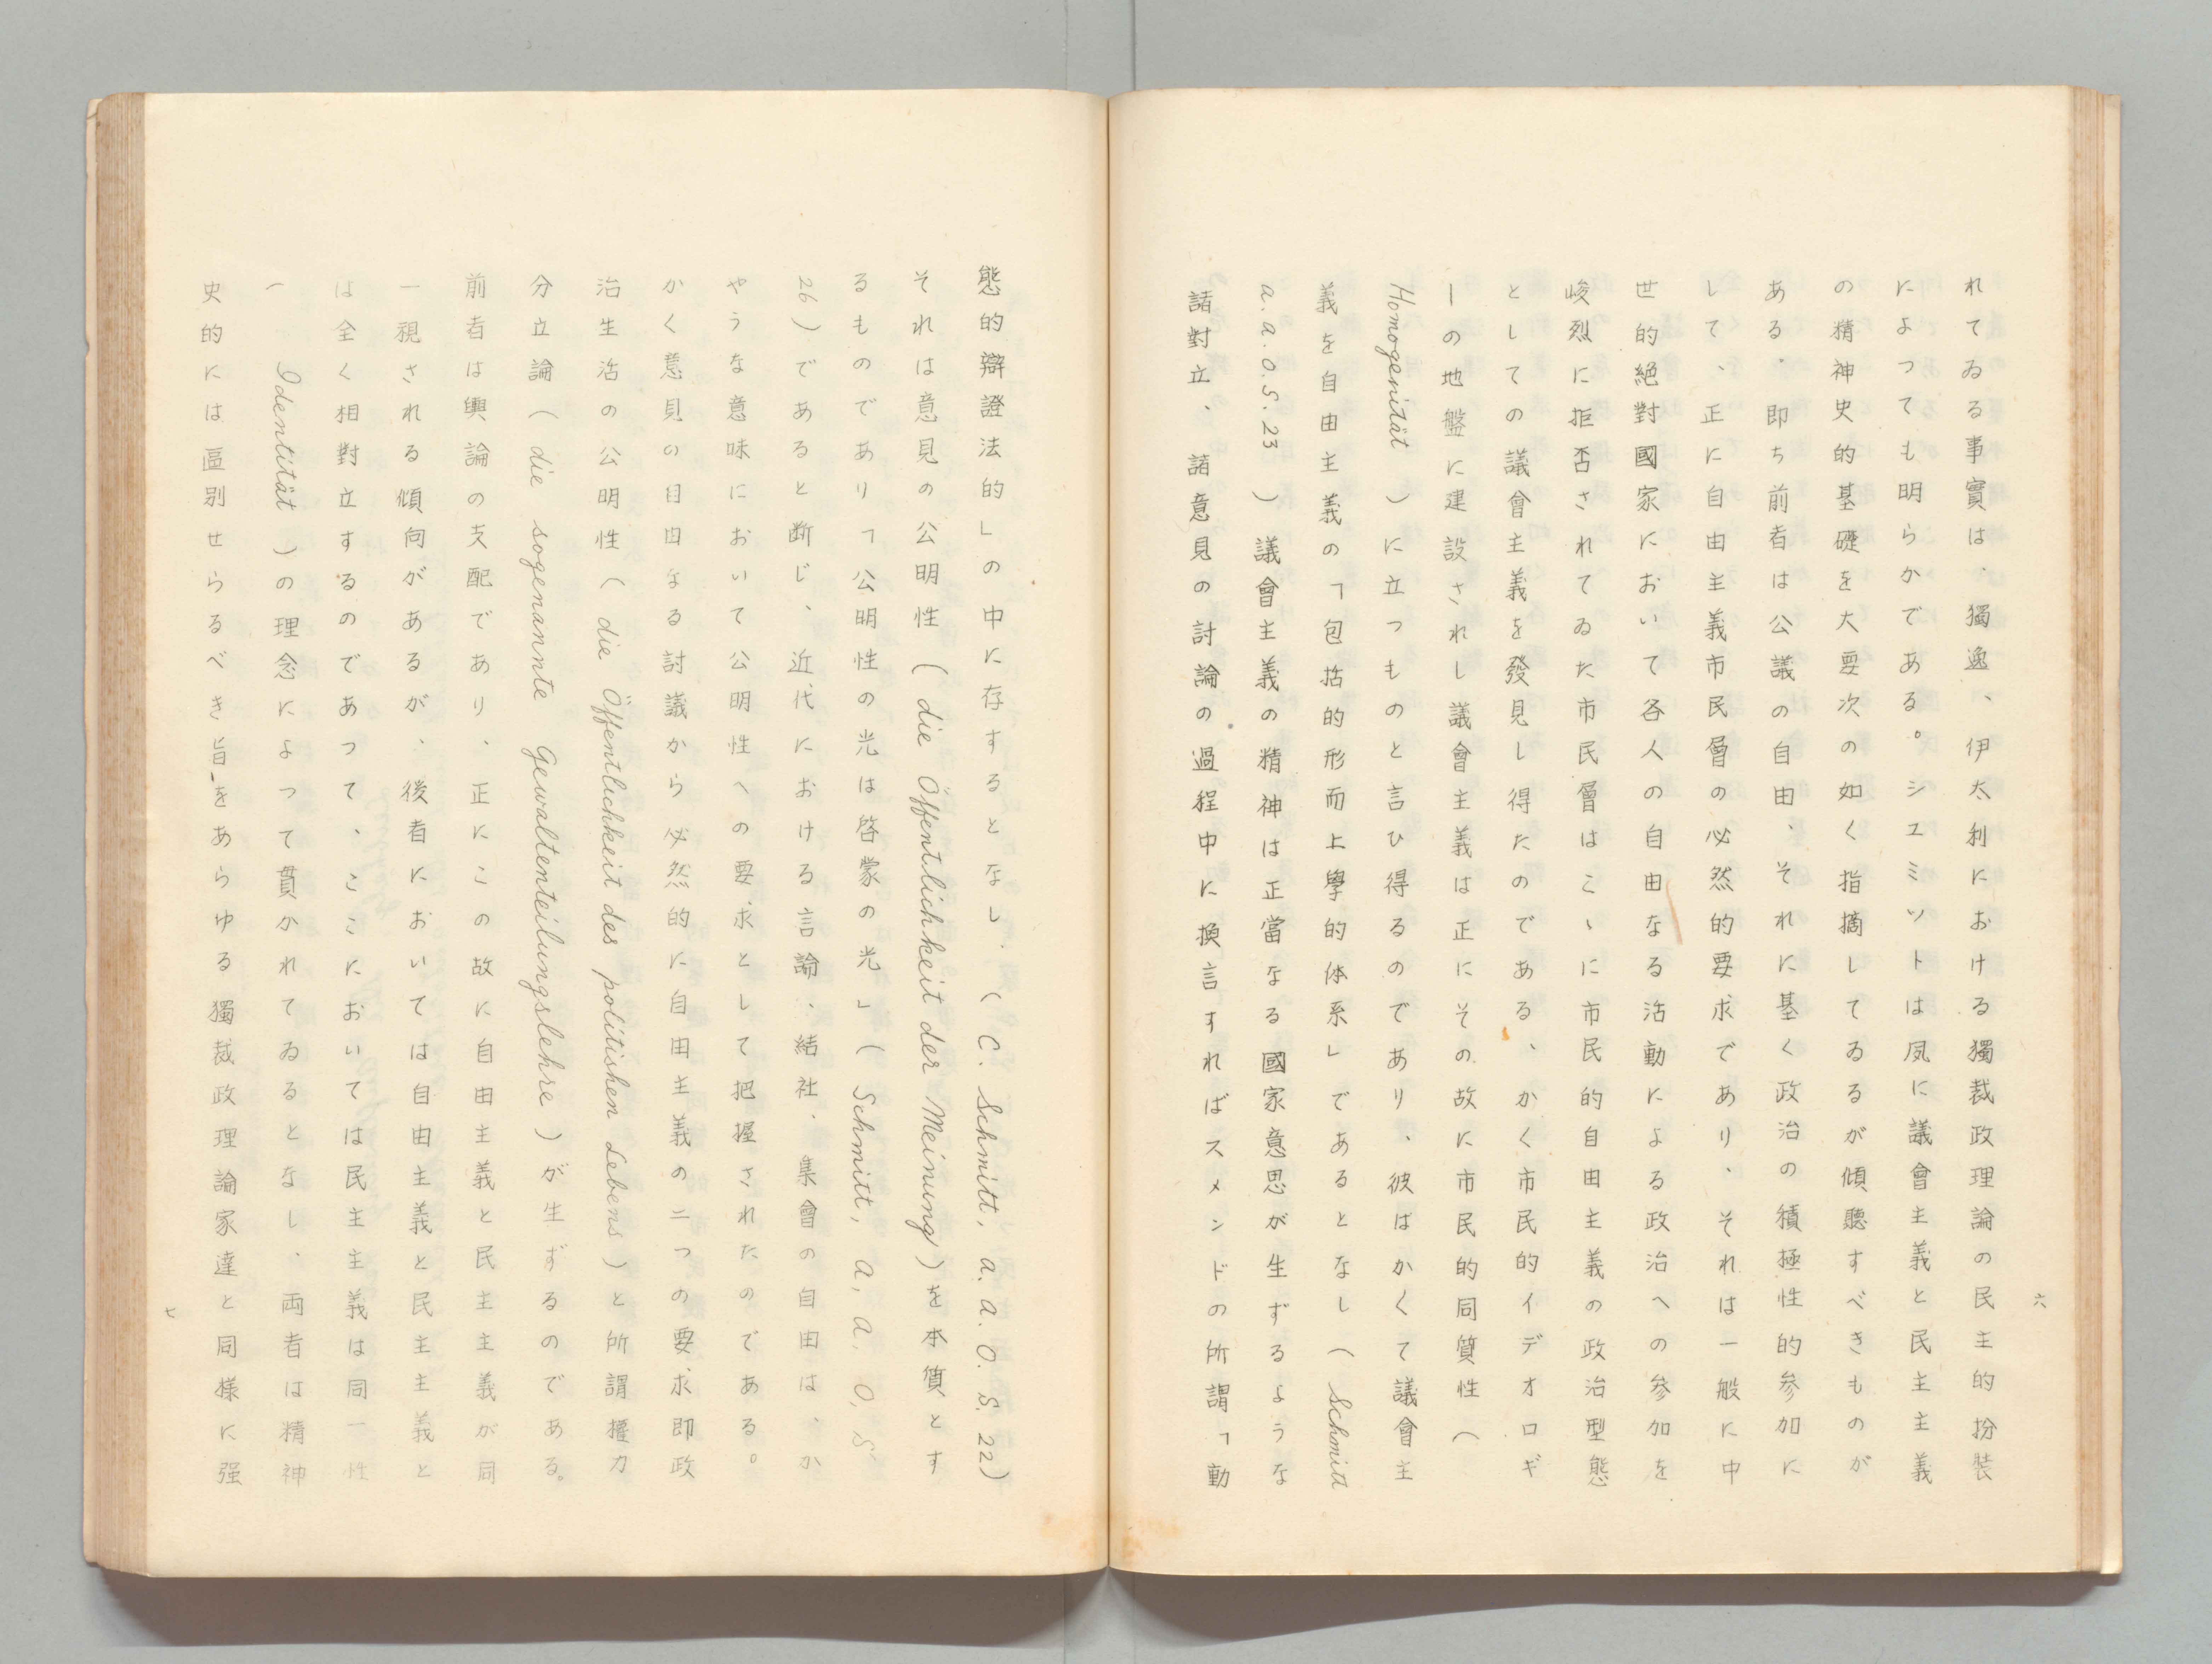 六
れてゐる事實は、獨逸、伊太利における獨裁政理論の民主的扮装
によつても明らかである。シユミツトは夙に議會主義と民主主義
の精神史的基礎を大要次の如く指摘してゐるが傾聽すべきものが
ある。即ち前者は公議の自由、それに基く政治の積極性的参加に
して、正に自由主義市民層の必然的要求であり、それは一般に中
世的絶對國家において各人の自由なる活動による政治への参加を
峻烈に拒否されてゐた市民層はこゝに市民的自由主義の政治型態
としての議會主義を發見し得たのである、かく市民的イデオロギ
ーの地盤に建設されし議會主義は正にその故に市民的同質性（
Homogenität）に立つものと言ひ得るのであり、彼はかくて議會主
義を自由主義の「包括的形而上學的体系」であるとなし（Schmitt
a.a.O.S.23）議會主義の精神は正當なる國家意思が生ずるような
諸對立、諸意見の討論の過程中に換言すればスメンドの所謂「動
態的辯證法的」の中に存するとなし、（C. Schmitt, a. a. O. S. 22）
それは意見の公明性（die Öffentlichkeit der Meinung）を本質とす
るものであり「公明性の光は啓蒙の光」（Schmitt, a, a, O, S
26）であると断じ、近代における言論、結社、集會の自由は、か
やうな意味において公明性への要求として把握されたのである。
かく意見の自由なる討議から必然的に自由主義の二つの要求即政
治生活の公明性（die Öffentlichkeit des politishen Lebens）と所謂權力
分立論（die sogenannte Gewaltenteilungslehre）が生ずるのである。
前者は輿論の支配であり、正にこの故に自由主義と民主主義が同
一視される傾向があるが、後者においては自由主義と民主主義と
は全く相對立するのであつて、ここにおいては民主主義は同一性
（Identität）の理念によつて貫かれてゐるとなし、両者は精神
史的には區別せらるべき旨をあらゆる獨裁政理論家達と同様に强
七